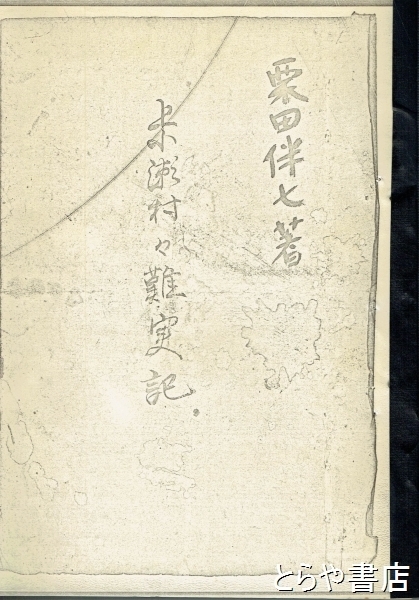 栗田伴七著
末瀬村々難実記
とらや書店